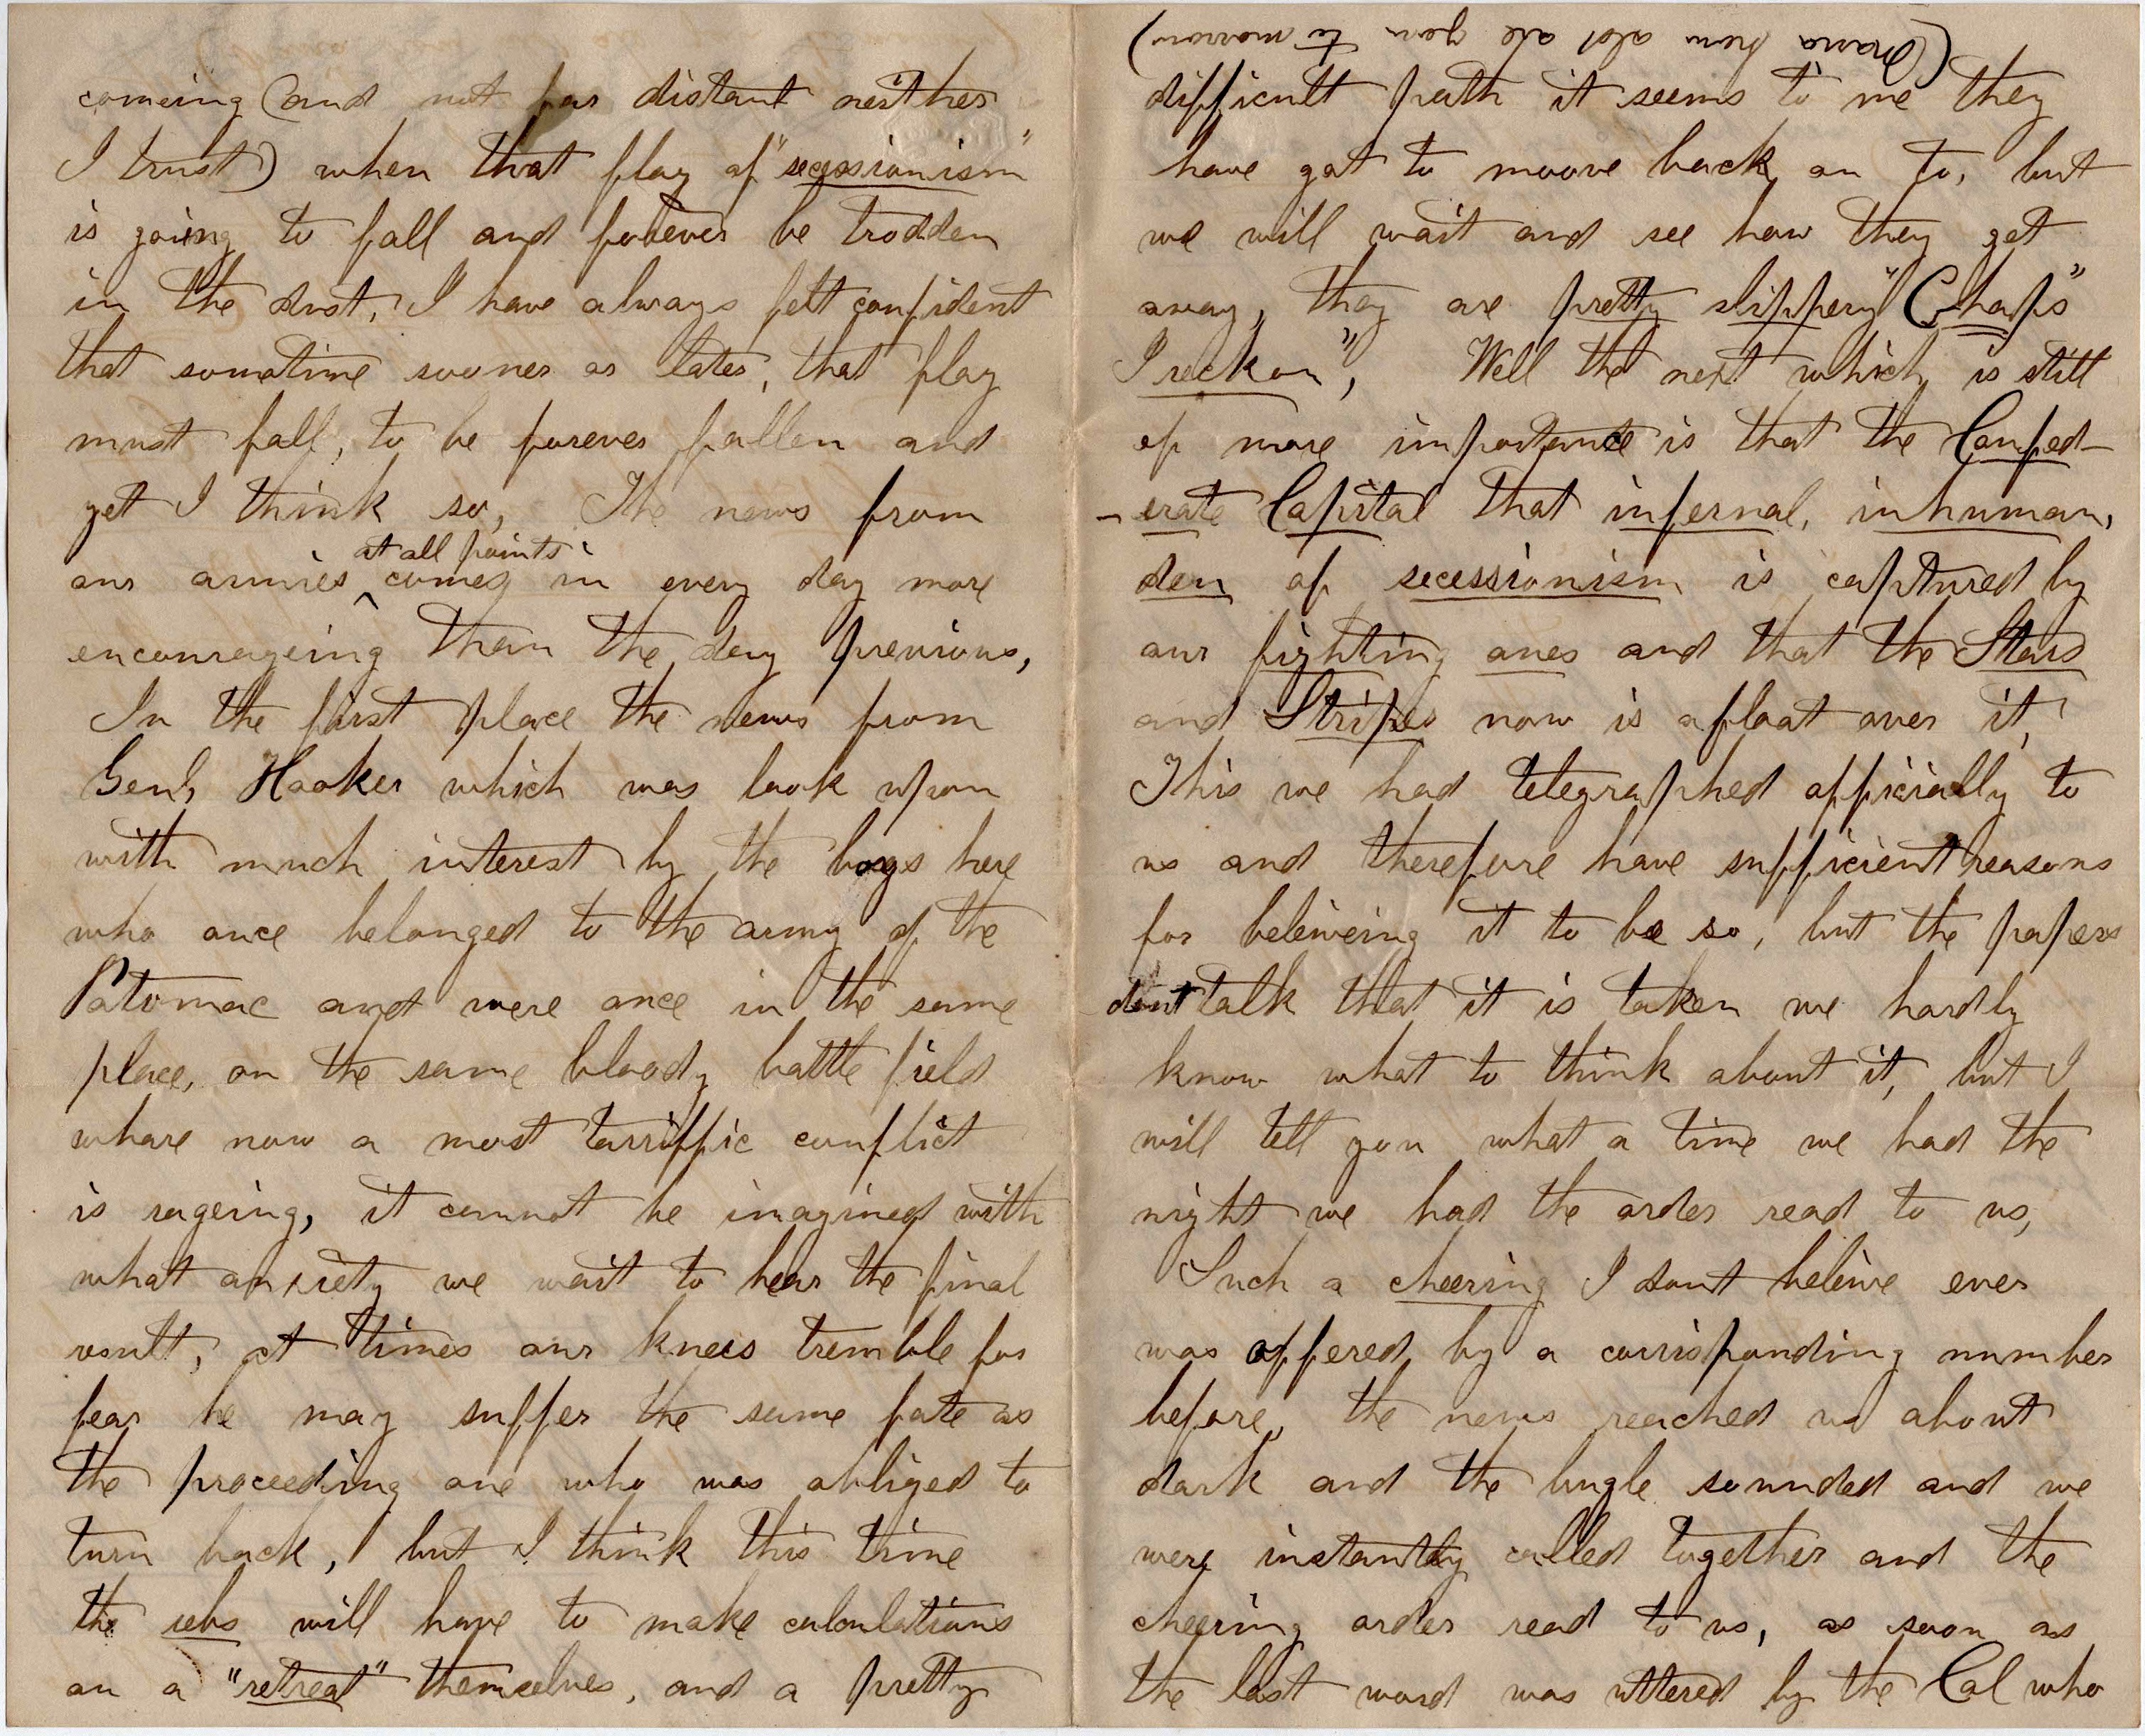 comeing (and not far distant neither
I trust) when that flag of "secessionism"
is going to fall and forever be trodden
in the dust, I have always felt confident
that sometime sooner or later, that flag
must fall, to be forever fallen and
yet I think so, The news from
at all points
our armies ^ comes in every day more
encourageing than the day previous,
In the first place the news from
Genl, Hooker which was look upon
with much interest by the boys here
who once belonged to the army of the
Potomac and were once in the same
place, on the same bloody battle field
whare now a most tarriffic conflict
is rageing, it cannot be imagined with
what anxiety we wait to hear the final
result, at times our knees tremble for
fear he may suffer the same fate as
the proceeding one who was obliged to
turn back, but I think this time
the rebs will have to make calculations
on a "retreat" themselves, and a pretty
to morrow)
difficult path it seems to me they
have got to moove back on to, but
we will wait and see how they get
away, they are pretty slippery "Chaps"
I reckon", Well the next which is still
of more importance is that the Confed-
-erate Capital that infernal, inhuman,
den of secessionism is captured by
our fighting ones and that the Stars
and Stripes now is afloat over it,
This we had telegraphed officially to
us and therefore have sufficient reasons
for beleiveing it to be so, but the papers
dont talk that it is taken we hardly
know what to think about it, but I
will tell you what a time we had the
night we had the order read to us,
Such a cheering I dont beleive ever
was offered by a corrisponding number
before, the news reached us about
dark and the bugle sounded and we
were instantly called together and the
cheering order read to us, as soon as
the last word was uttered by the Col who